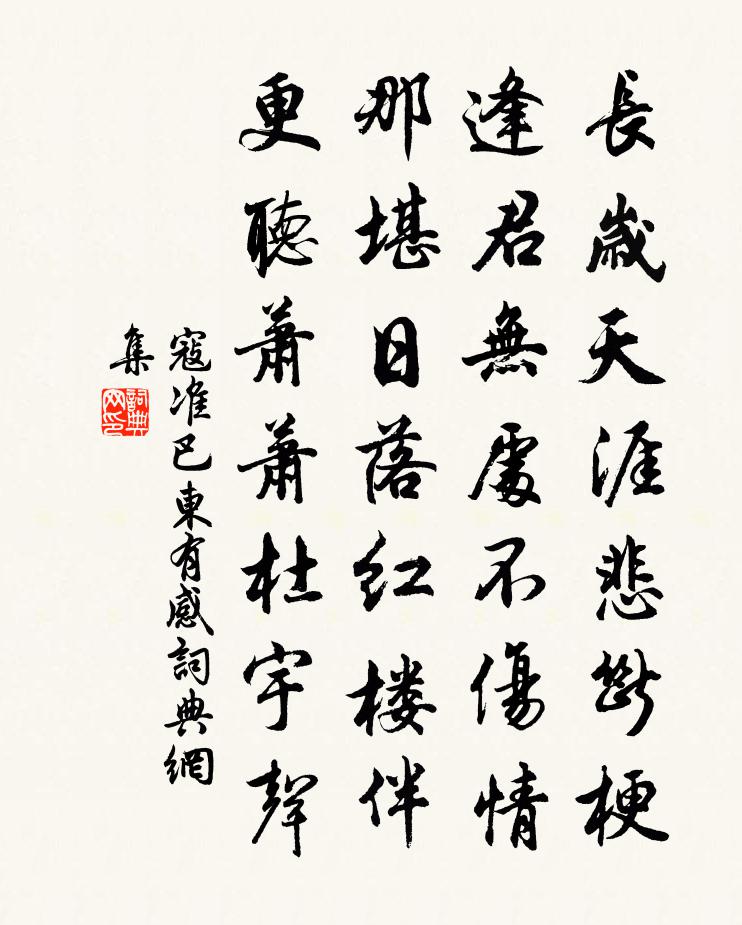 長歲天涯悲斷梗
逢君無處不傷情
那堪日落紅楼伴
更聽蕭蕭杜宇聲
寇准巴東有感詞典網
集
詞典
网印